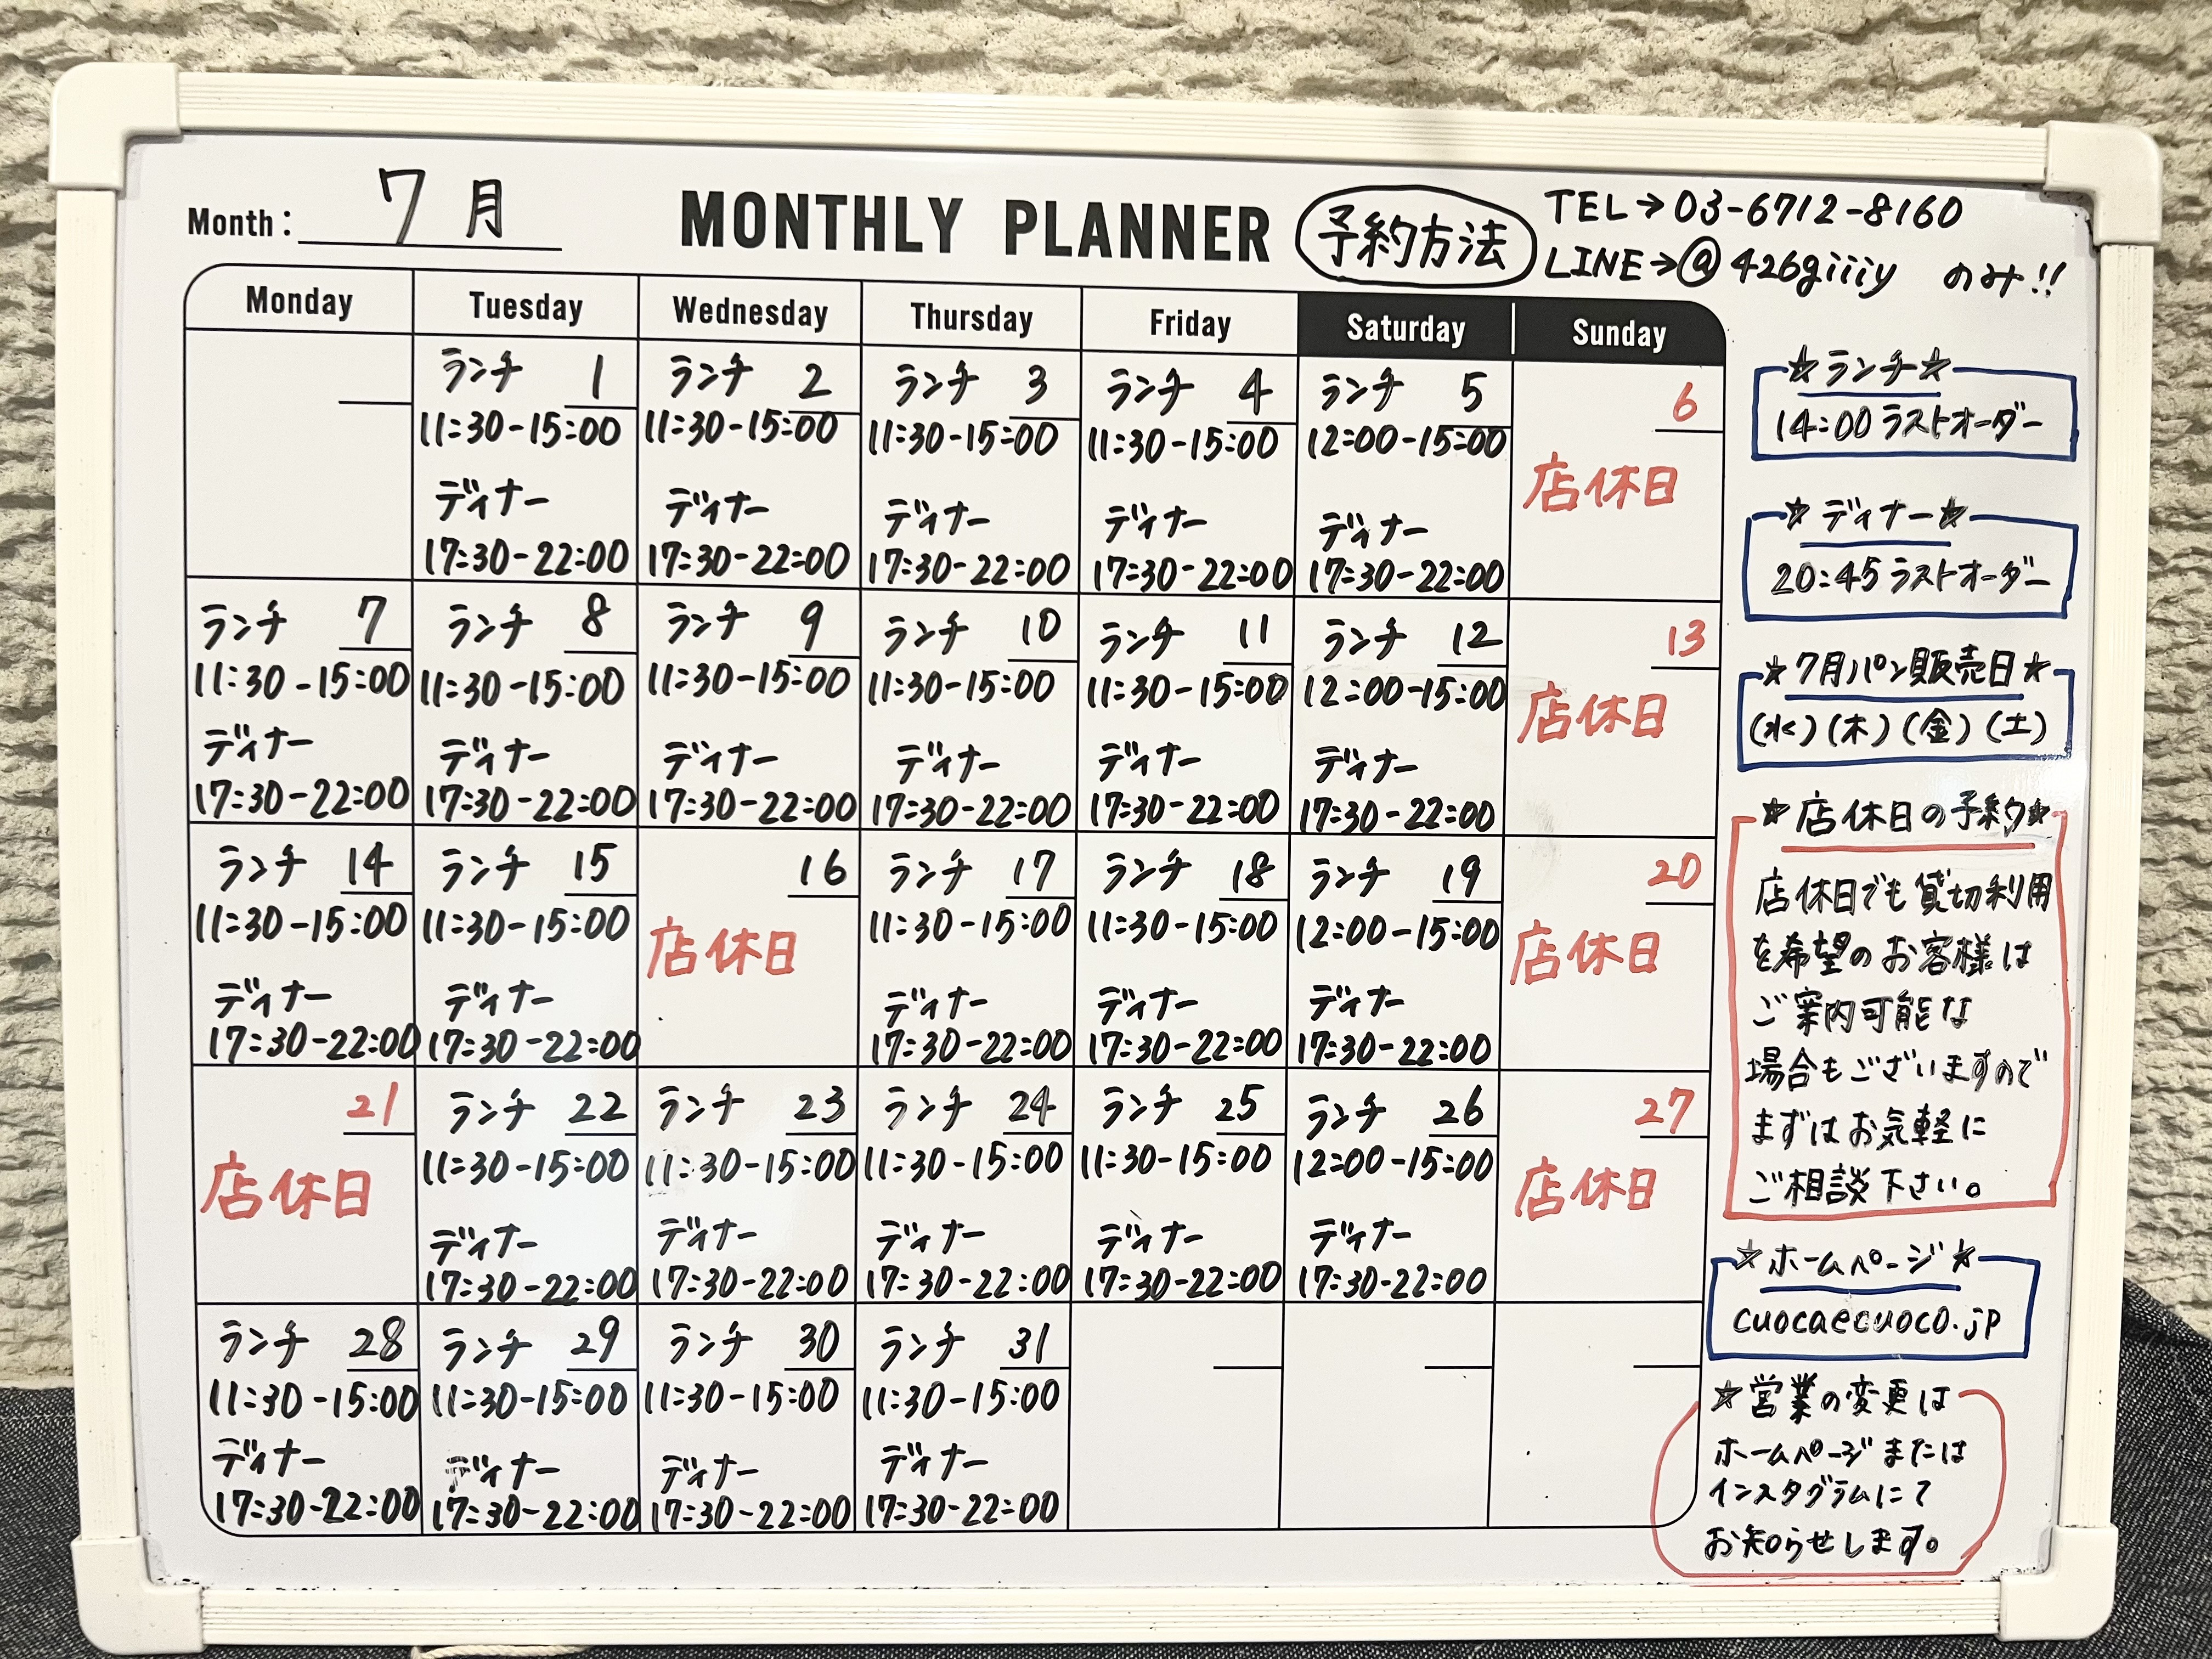 Month: 7月
MONTHLY PLANNER
予約方法
TEL→03-6712-8160
LINE→@426giiiy のみ!!
Monday Tuesday Wednesday Thursday Friday Saturday Sunday
ランチ 1
11:30-15:00
ディナー
17:30-22:00
ランチ 2
11:30-15:00
ディナー
17:30-22:00
ランチ 3
11:30-15:00
ディナー
17:30-22:00
ランチ 4
11:30-15:00
ディナー
17:30-22:00
ランチ 5
12:00-15:00
ディナー
17:30-22:00
6
店休日
ランチ 7
11:30-15:00
ディナー
17:30-22:00
ランチ 8
11:30-15:00
ディナー
17:30-22:00
ランチ 9
11:30-15:00
ディナー
17:30-22:00
ランチ 10
11:30-15:00
ディナー
17:30-22:00
ランチ 11
11:30-15:00
ディナー
17:30-22:00
ランチ 12
12:00-15:00
ディナー
17:30-22:00
13
店休日
ランチ 14
11:30-15:00
ディナー
17:30-22:00
ランチ 15
11:30-15:00
ディナー
17:30-22:00
16
店休日
ランチ 17
11:30-15:00
ディナー
17:30-22:00
ランチ 18
11:30-15:00
ディナー
17:30-22:00
ランチ 19
12:00-15:00
ディナー
17:30-22:00
20
店休日
21
店休日
ランチ 22
11:30-15:00
ディナー
17:30-22:00
ランチ 23
11:30-15:00
ディナー
17:30-22:00
ランチ 24
11:30-15:00
ディナー
17:30-22:00
ランチ 25
11:30-15:00
ディナー
17:30-22:00
ランチ 26
12:00-15:00
ディナー
17:30-22:00
27
店休日
ランチ 28
11:30-15:00
ディナー
17:30-22:00
ランチ 29
11:30-15:00
ディナー
17:30-22:00
ランチ 30
11:30-15:00
ディナー
17:30-22:00
ランチ 31
11:30-15:00
ディナー
17:30-22:00
☆ランチ☆
14:00ラストオーダー
☆ディナー☆
20:45ラストオーダー
☆7月パン販売日☆
(水)(木)(金)(土)
☆店休日の予約☆
店休日でも貸切利用
を希望のお客様は
ご案内可能な
場合もございますので
まずはお気軽に
ご相談下さい。
☆ホームページ☆
cuocaecuoco.jp
☆営業の変更は
ホームページまたは
インスタグラムにて
お知らせします。